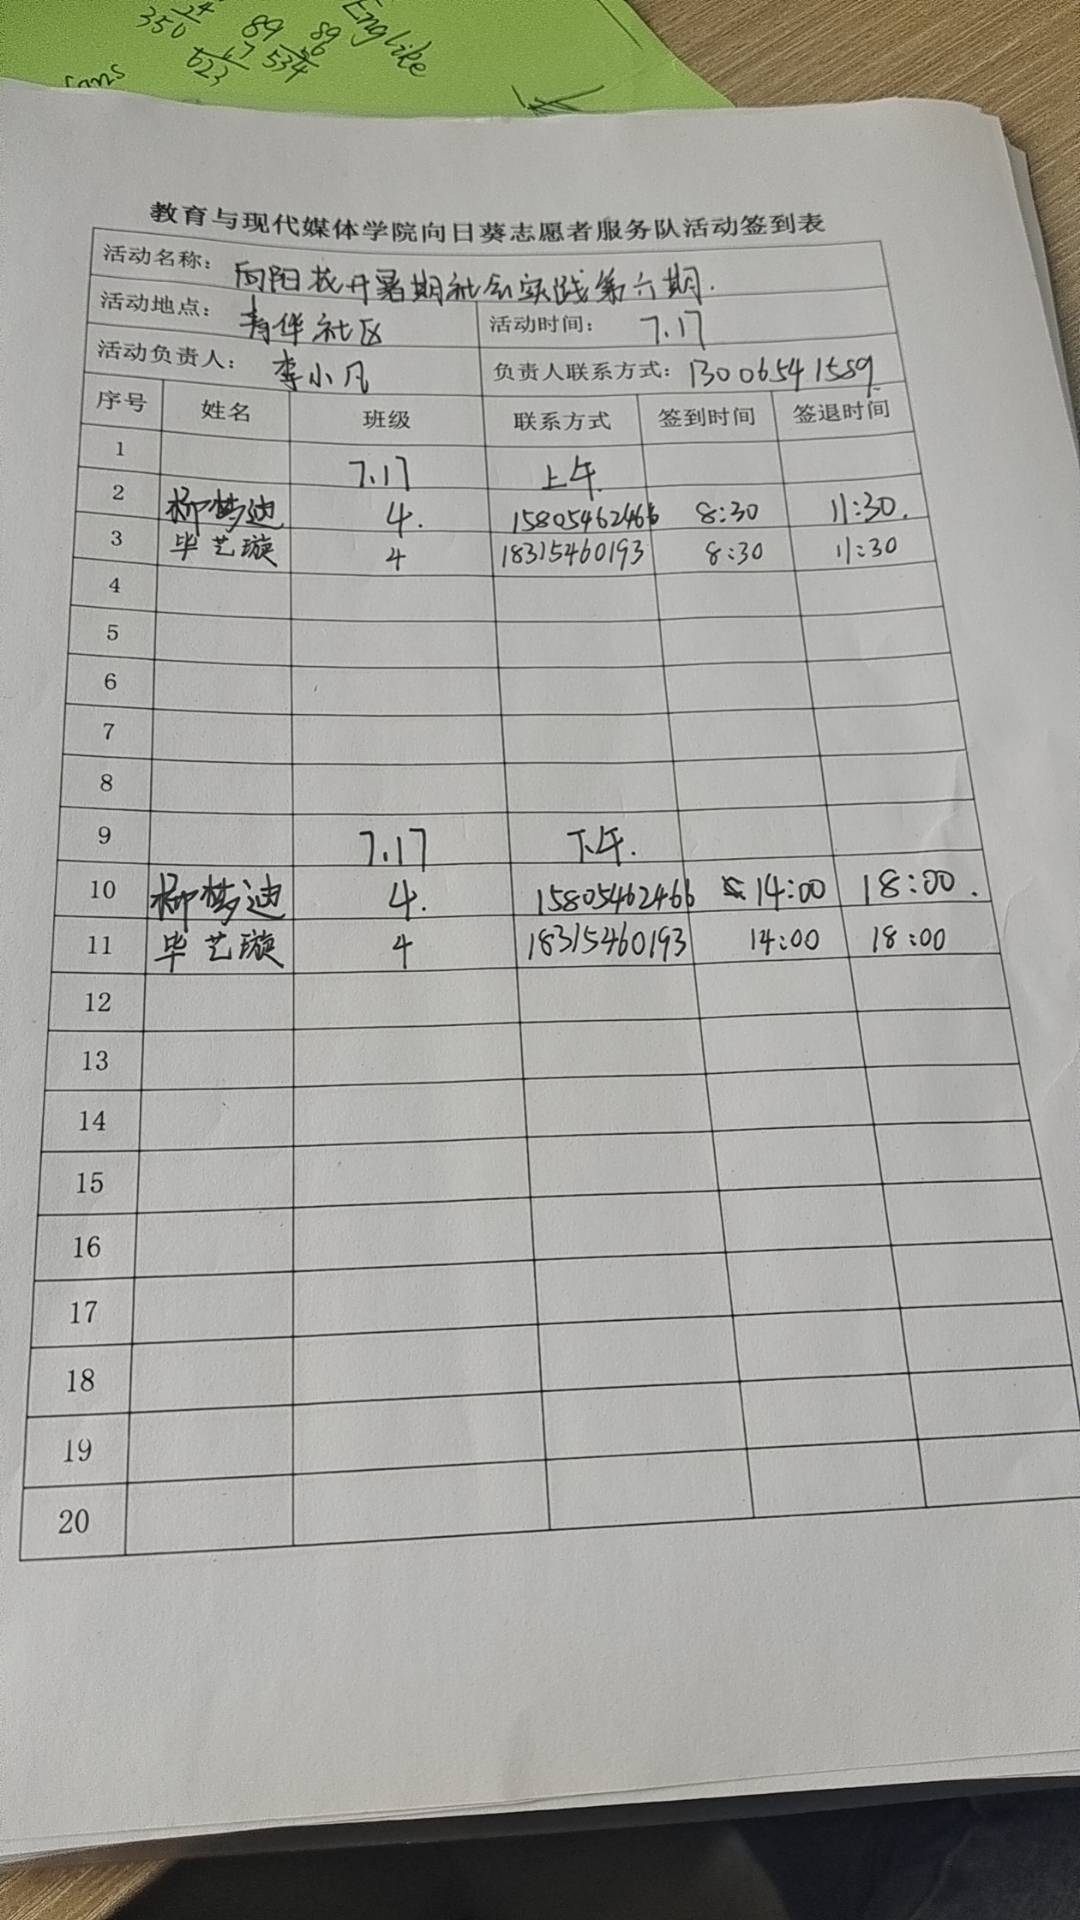 350
24
89
7
623
89
6
534
Englike
教育与现代媒体学院向日葵志愿者服务队活动签到表
活动名称： 向阳花开暑期社会实践第六期.
活动地点： 青华社区 活动时间： 7.17
活动负责人： 李小凡 负责人联系方式： 13006541589
序号 姓名 班级 联系方式 签到时间 签退时间
1 7.17 上午.
2 柳梦迪 4. 15805462466 8:30 11:30.
3 毕艺璇 4 18315460193 8:30 11:30
4
5
6
7
8
9 7.17 下午.
10 柳梦迪 4. 15805462466 14:00 18:00.
11 毕艺璇 4 18315460193 14:00 18:00
12
13
14
15
16
17
18
19
20